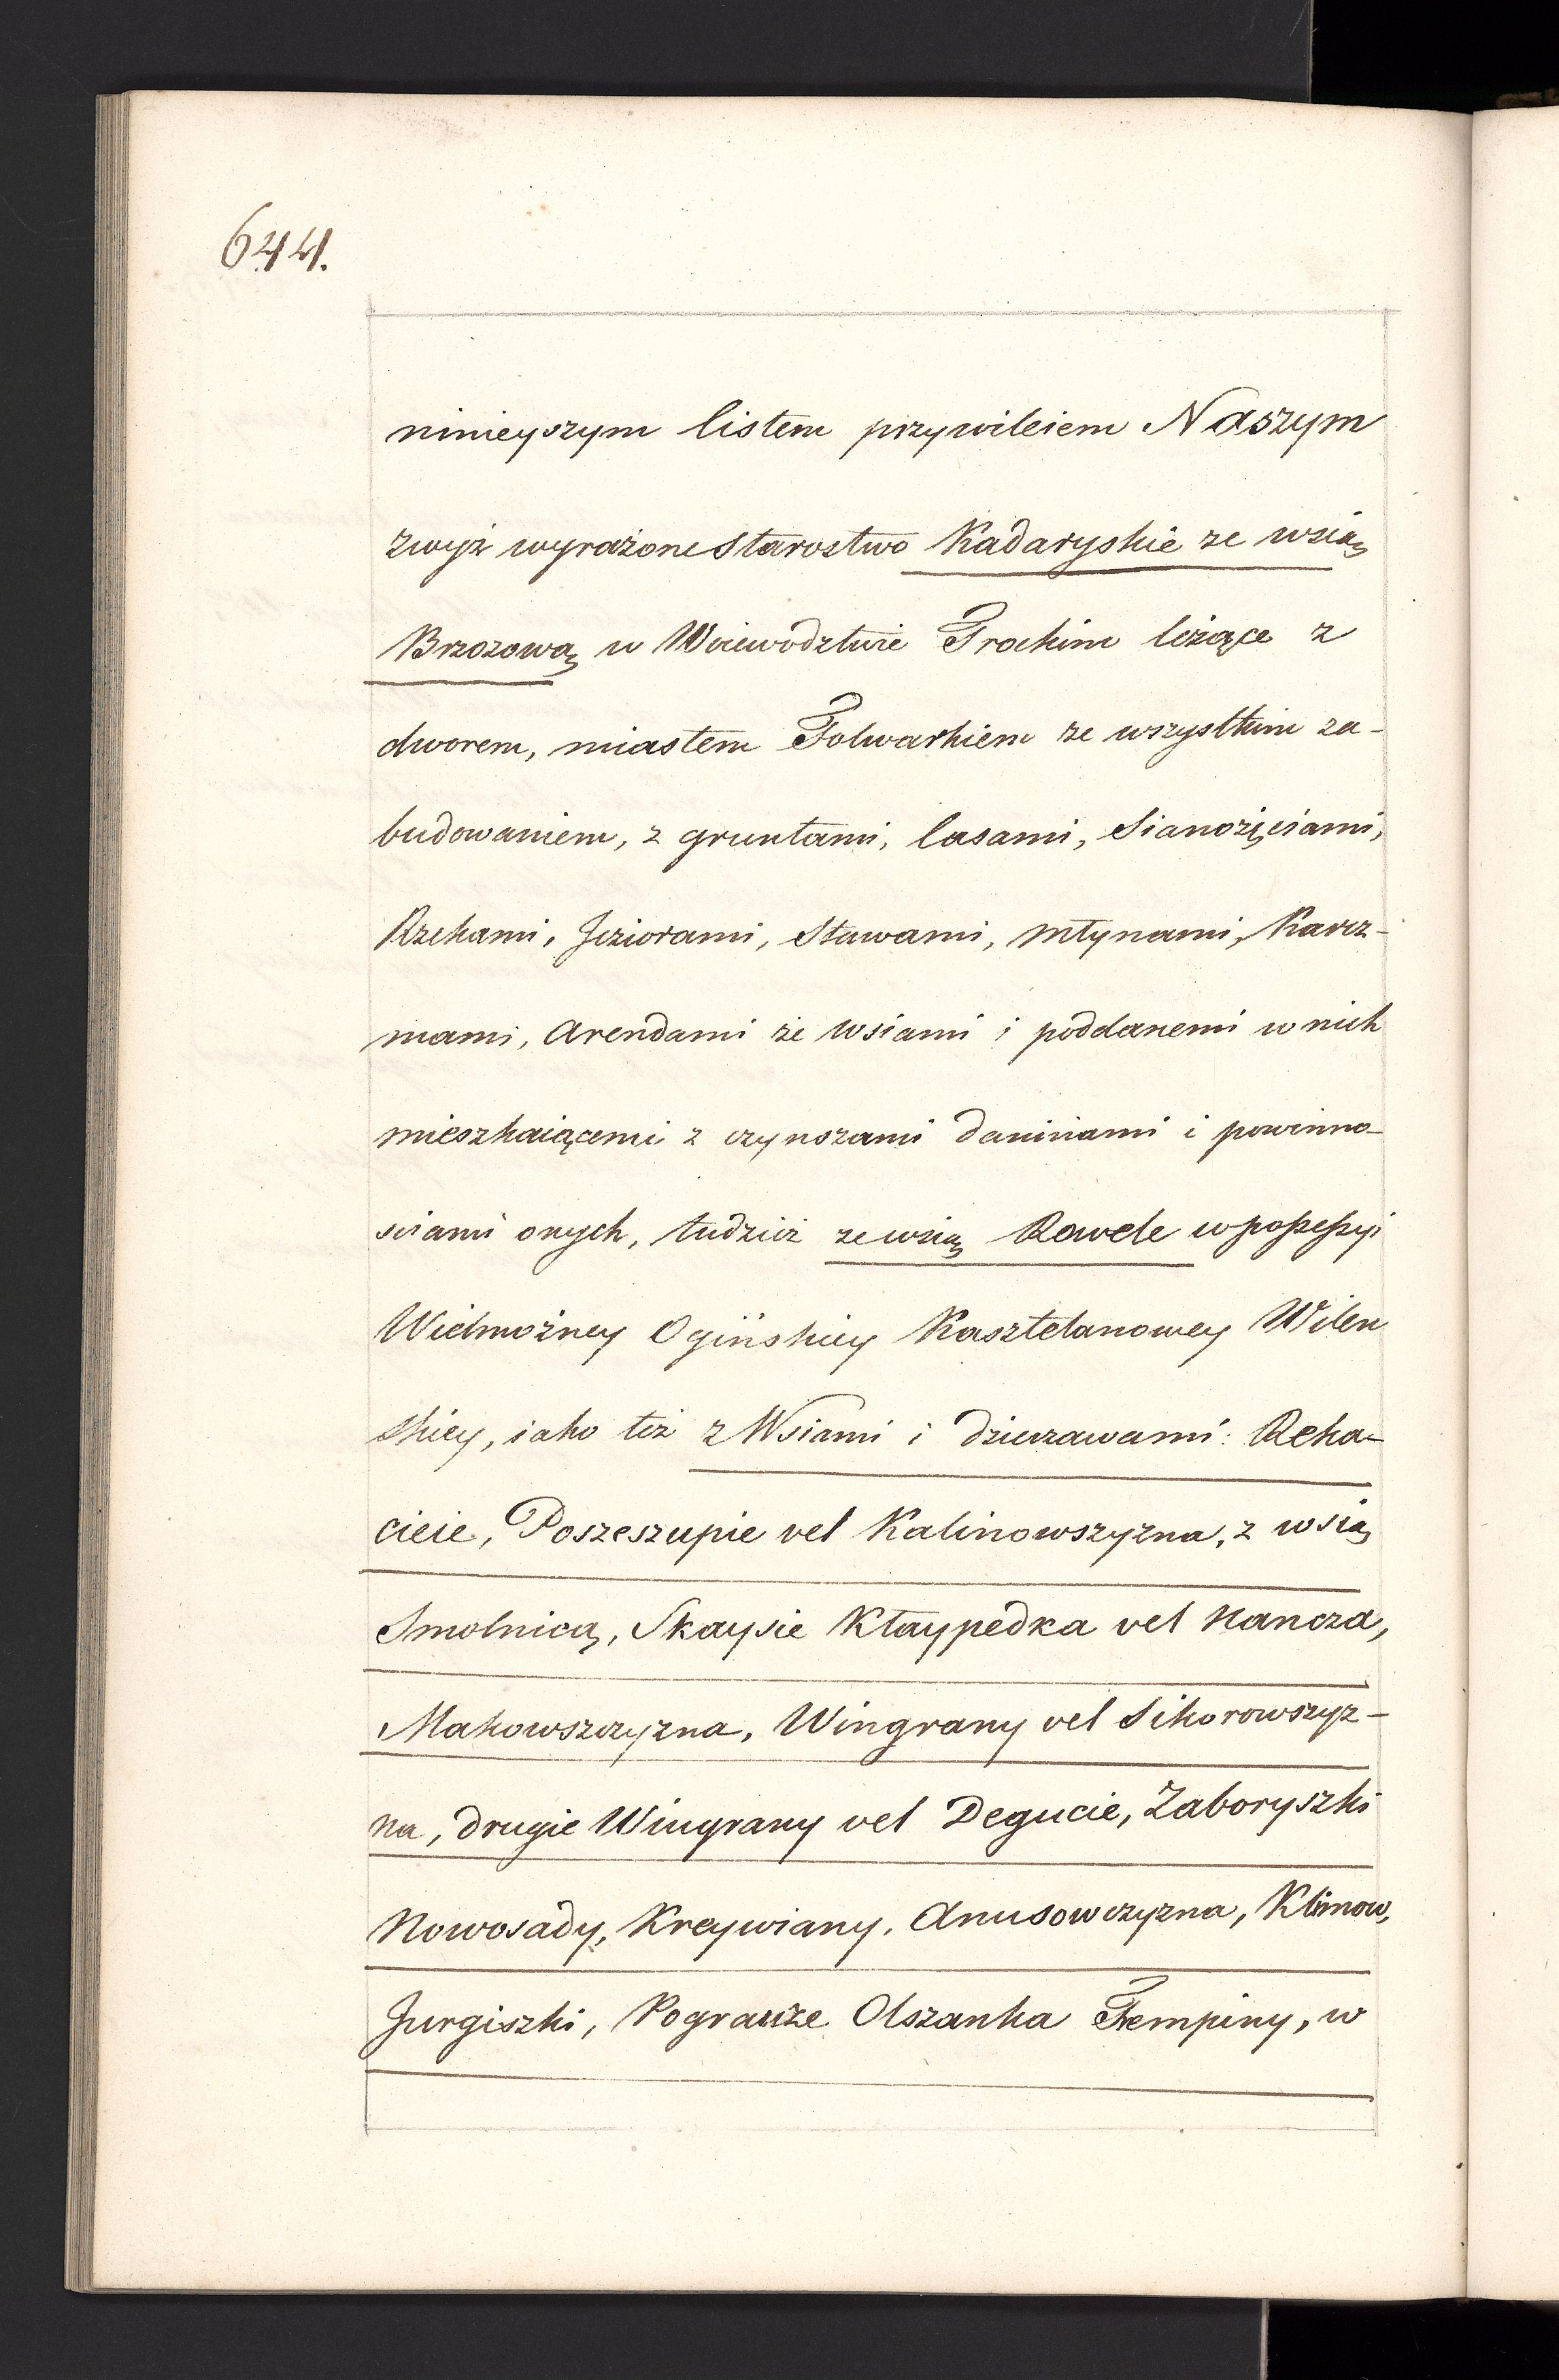 644.
ninieyszym listem przywileiem Naszym
zwyż wyrażone Starostwo Kadaryskie ze wsią
Brzozową w Woiewodztwie Trockim leżące z
dworem, miastem Folwarkiem ze wszystkim za-
budowaniem, z gruntami, lasami, Sianożęciami,
Rzekami, Jeziorami, Stawami, młynami, Karcz-
mami, Arendami ze wsiami i poddanemi w nich
mieszkaiącemi z czynszami daninami i powinno-
sciami onych, tudzież ze wsią Rowele w possessyi
Wielmożney Ogińskiey Kasztelanowey Wilen
skiey, iako też z Wsiami i dzierzawami: Reka-
cieie, Poszeszupie vel Kalinowszyzna, z wsią
Smolnicą, Skaysie Kłaypedka vel Hancza,
Makowszczyzna, Wingrany vel Sikorowszyz-
na, drugie Wingrany vel Degucie, Zaboryszki
Nowosady, Kreywiany, Anusowczyzna, Klimow,
Jurgiszki, Pograuze Olszanka Trempiny, w